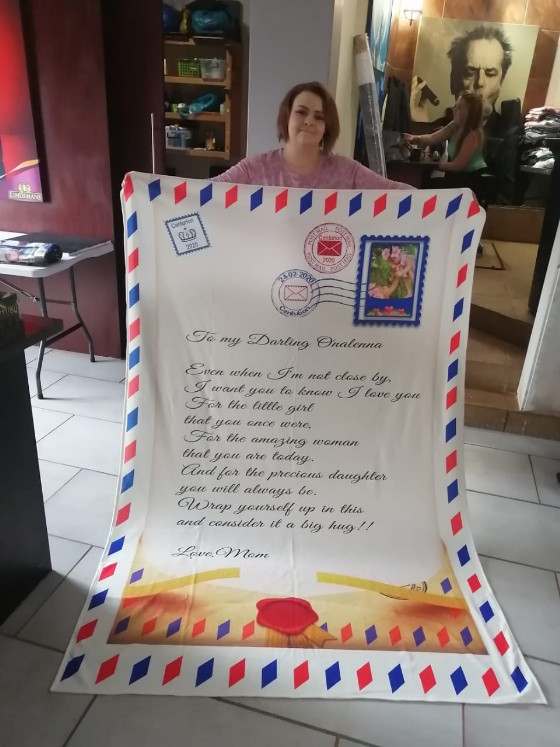 Centurion
2020
POST MAIL POST MAIL
Centurion
2020
POST MAIL POST MAIL
24-02-2020
Centurion
To my Darling Onalenna
Even when I'm not close by,
I want you to know I love you
For the little girl
that you once were,
For the amazing woman
that you are today.
And for the precious daughter
you will always be.
Wrap yourself up in this
and consider it a big hug!!
Love, Mom